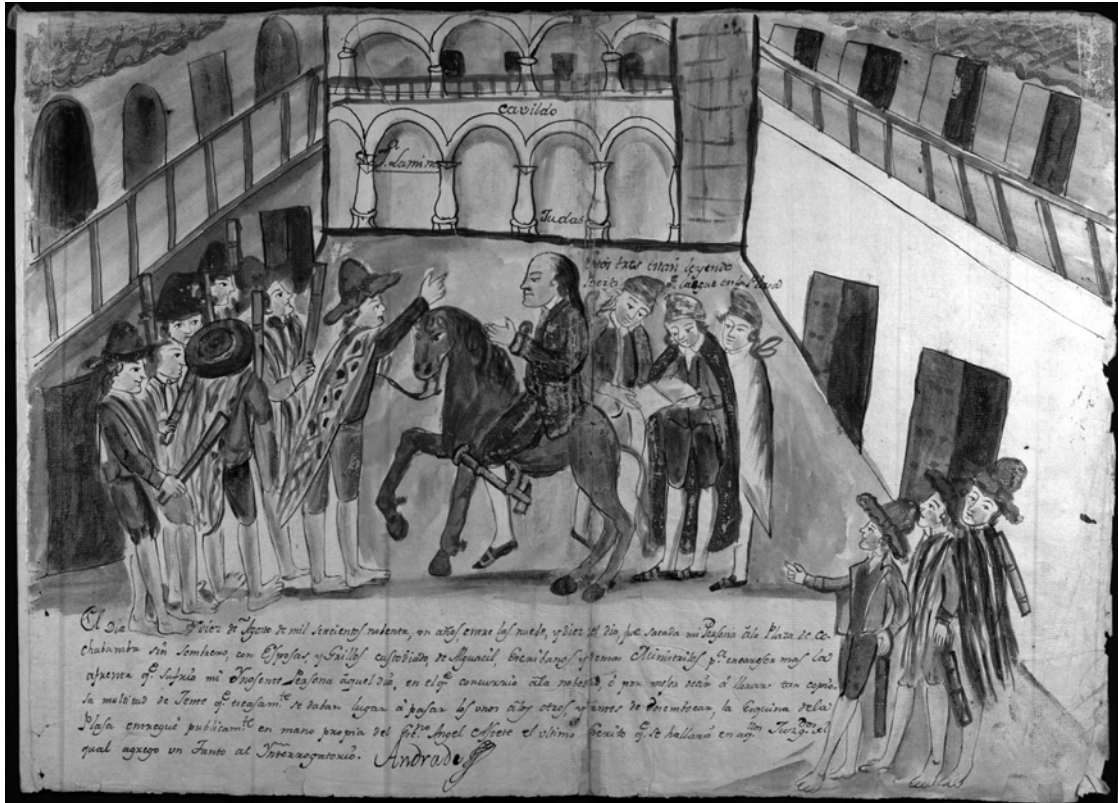 Cavildo
Lamina
Judas
Estos tres están leyendo
en la Plasa
El Dia y diez de Agosto de mil setecientos nobenta, un años entre las nuebe, y diez del dia fue sacada mi Persona âla Plaza de Co-
chabamba sin Sombrero, con Esposas, y Grillos custodiado, de Alguacil, Escribanos y demas Ministriles pa. encareser mas la
afrenta qe. sufrio mi Ynosente Persona aquel dia, en el qe. concurrio âla nobedad, ô por mejor decir â llorar tan copio-
sa multitud de Jente qe. escasamte. se daban lugar â pasar los unos âlos otros y antes de desembocar, la Esquina dela
Plasa entregué publicamte. en mano propia del Angel Astete el ultimo Escrito qe. se hallara en el
qual agrego un Tanto al Ynterrogatorio. Andrade